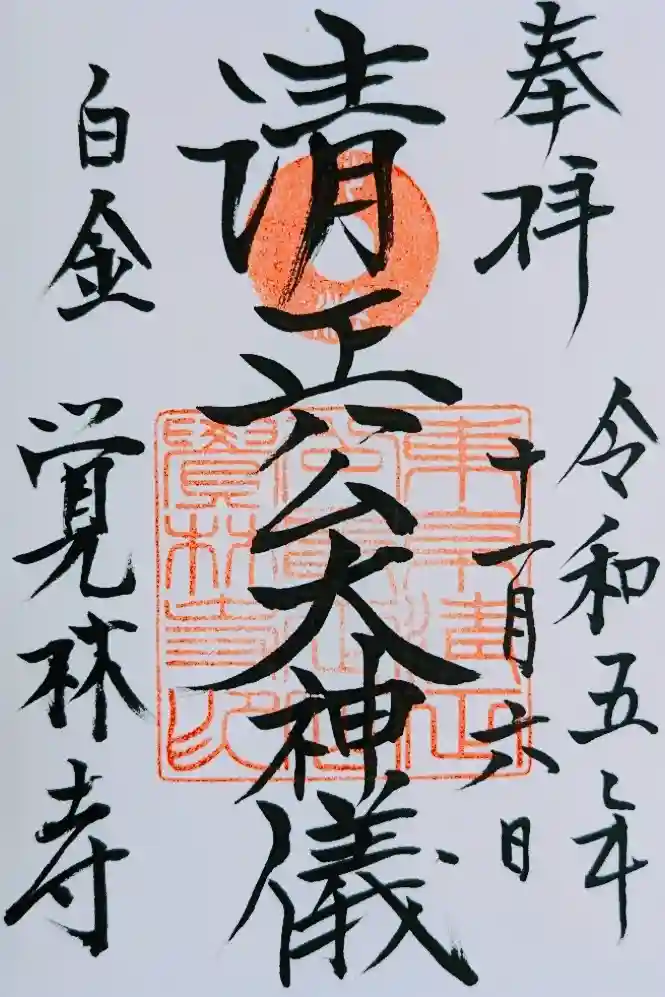 奉拝
令和五年
十一月六日
清正公大神儀
白金
覚林寺